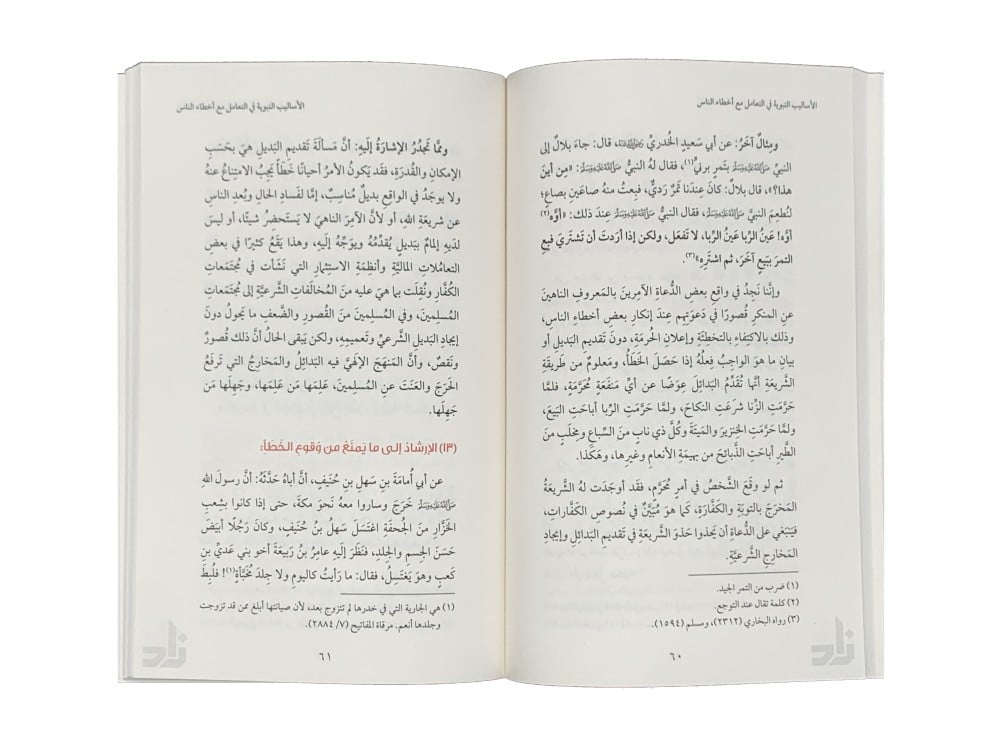 الأساليب النبوية في التعامل مع أخطاء الناس
ومِثالٌ آخَرُ: عن أبي سَعيدٍ الخُدريِّ رَضِيَ اللَّهُ عَنْهُ، قال: جاءَ بلالٌ إلى
النبيِّ صَلَّى اللَّهُ عَلَيْهِ وَسَلَّمَ بتَمرٍ برنيٍّ(١)، فقال لهُ النبيُّ صَلَّى اللَّهُ عَلَيْهِ وَسَلَّمَ: «مِن أينَ
هذا؟»، قال بلالٌ: كانَ عِندَنا تَمرٌ رَديٌّ، فبِعتُ منهُ صاعَينِ بصاعٍ؛
لنُطعِمَ النبيَّ صَلَّى اللَّهُ عَلَيْهِ وَسَلَّمَ، فقال النبيُّ صَلَّى اللَّهُ عَلَيْهِ وَسَلَّمَ عِندَ ذلك: «أوَّه(٢)
أوَّه! عَينُ الرِّبا عَينُ الرِّبا، لا تَفعَل، ولكن إذا أرَدتَ أن تَشتَريَ فبِعِ
التمرَ ببَيعٍ آخَرَ، ثم اشتَرِهِ»(٣).
وإنَّنا نَجِدُ في واقِعِ بعضِ الدُّعاةِ الآمِرينَ بالمَعروفِ الناهينَ
عنِ المنكَرِ قُصورًا في دَعوَتِهِم عِندَ إنكارِ بعضِ أخطاءِ الناسِ،
وذلك بالاكتِفاءِ بالتخطِئةِ وإعلانِ الحُرمَةِ، دونَ تَقديمِ البَديلِ أو
بيانِ ما هو الواجِبُ فِعلُهُ إذا حَصَلَ الخَطَأُ، ومَعلومٌ من طَريقةِ
الشَّريعَةِ أنَّها تُقدِّمُ البَدائلَ عِوَضًا عن أيِّ مَنفَعةٍ مُحَرَّمَةٍ، فلمَّا
حَرَّمَتِ الزِّنا شرَعَتِ النكاحَ، ولمَّا حَرَّمَتِ الرِّبا أباحَتِ البَيعَ،
ولمَّا حَرَّمَتِ الخِنزيرَ والمَيتَةَ وكُلَّ ذي نابٍ منَ السِّباعِ ومِخلَبٍ منَ
الطَّيرِ أباحَتِ الذَّبائحَ من بهيمَةِ الأنعامِ وغيرِها، وهَكَذا.
ثم لو وقَعَ الشَّخصُ في أمرٍ مُحَرَّمٍ، فقد أوجَدَت لهُ الشَّريعَةُ
المَخرَجَ بالتوبَةِ والكَفَّارَةِ، كما هو مُبَيَّنٌ في نُصوصِ الكَفَّاراتِ،
فيَنبَغي على الدُّعاةِ أن يَحْذوا حَذوَ الشَّريعَةِ في تَقديمِ البَدائلِ وإيجادِ
المَخارِجِ الشَّرعيَّةِ.
(١) ضرب من التمر الجيد.
(٢) كلمة تقال عند التوجع.
(٣) رواه البخاري (٢٣١٢)، ومسلم (١٥٩٤).
٦٠
زاد
الأساليب النبوية في التعامل مع أخطاء الناس
وممَّا تَجدُرُ الإشارَةُ إلَيهِ: أنَّ مَسألَةَ تَقديمِ البَديلِ هيَ بحَسَبِ
الإمكانِ والقُدرَةِ، فقَد يَكونُ الأمرُ أحيانًا خَطَأً يَجِبُ الامتِناعُ عنهُ
ولا يوجَدُ في الواقعِ بديلٌ مُناسِبٌ، إمَّا لفَسادِ الحالِ وبُعدِ الناسِ
عن شَريعَةِ اللهِ، أو لأنَّ الآمِرَ الناهيَ لا يَستَحضِرُ شيئًا، أو ليسَ
لدَيهِ إلمامٌ ببَديلٍ يُقدِّمُهُ ويوَجِّهُ إلَيهِ، وهذا يَقَعُ كثيرًا في بعضِ
التعامُلاتِ الماليَّةِ وأنظِمَةِ الاستِثمارِ التي نَشَأت في مُجتَمَعاتِ
الكُفَّارِ ونُقلَت بما هيَ عليه منَ المُخالَفاتِ الشَّرعيَّةِ إلى مُجتَمَعاتِ
المُسلِمينَ، وفي المُسلِمينَ منَ القُصورِ والضَّعفِ ما يَحولُ دونَ
إيجادِ البَديلِ الشَّرعيِّ وتَعميمِهِ، ولكن يَبقى الحالُ أنَّ ذلك قُصورٌ
ونَقصٌ، وأنَّ المَنهَجَ الإلَهيَّ فيهِ البَدائلُ والمَخارِجُ التي تَرفَعُ
الحَرَجَ والعَنَتَ عنِ المُسلِمينَ، عَلِمَها مَن عَلِمَها، وجَهِلَها مَن
جَهِلَها.
(١٣) الإرشادُ إلى ما يَمنَعُ من وُقوعِ الخَطَأِ:
عن أبي أُمامَةَ بنِ سَهلِ بنِ حُنَيفٍ، أنَّ أباهُ حَدَّثَهُ: أنَّ رسولَ اللهِ
صَلَّى اللَّهُ عَلَيْهِ وَسَلَّمَ خَرَجَ وساروا معهُ نَحوَ مكةَ، حتى إذا كانوا بشِعبِ
الخَزَّارِ منَ الجُحفَةِ اغتَسَلَ سَهلُ بنُ حُنَيفٍ، وكانَ رَجُلًا أبيَضَ
حَسَنَ الجِسمِ والجِلدِ، فنَظَرَ إلَيهِ عامِرُ بنُ رَبيعَةَ أخو بني عَديِّ بنِ
كَعبٍ وهوَ يَغتَسِلُ، فقال: ما رَأيتُ كاليومِ ولا جِلدَ مُخَبَّأةٍ(١)! فلُبِطَ
(١) هي الجارية التي في خدرها لم تتزوج بعد، لأن صيانتها أبلغ ممن قد تزوجت
وجلدها أنعم. مرقاة المفاتيح (٧/ ٢٨٨٤).
٦١
زاد